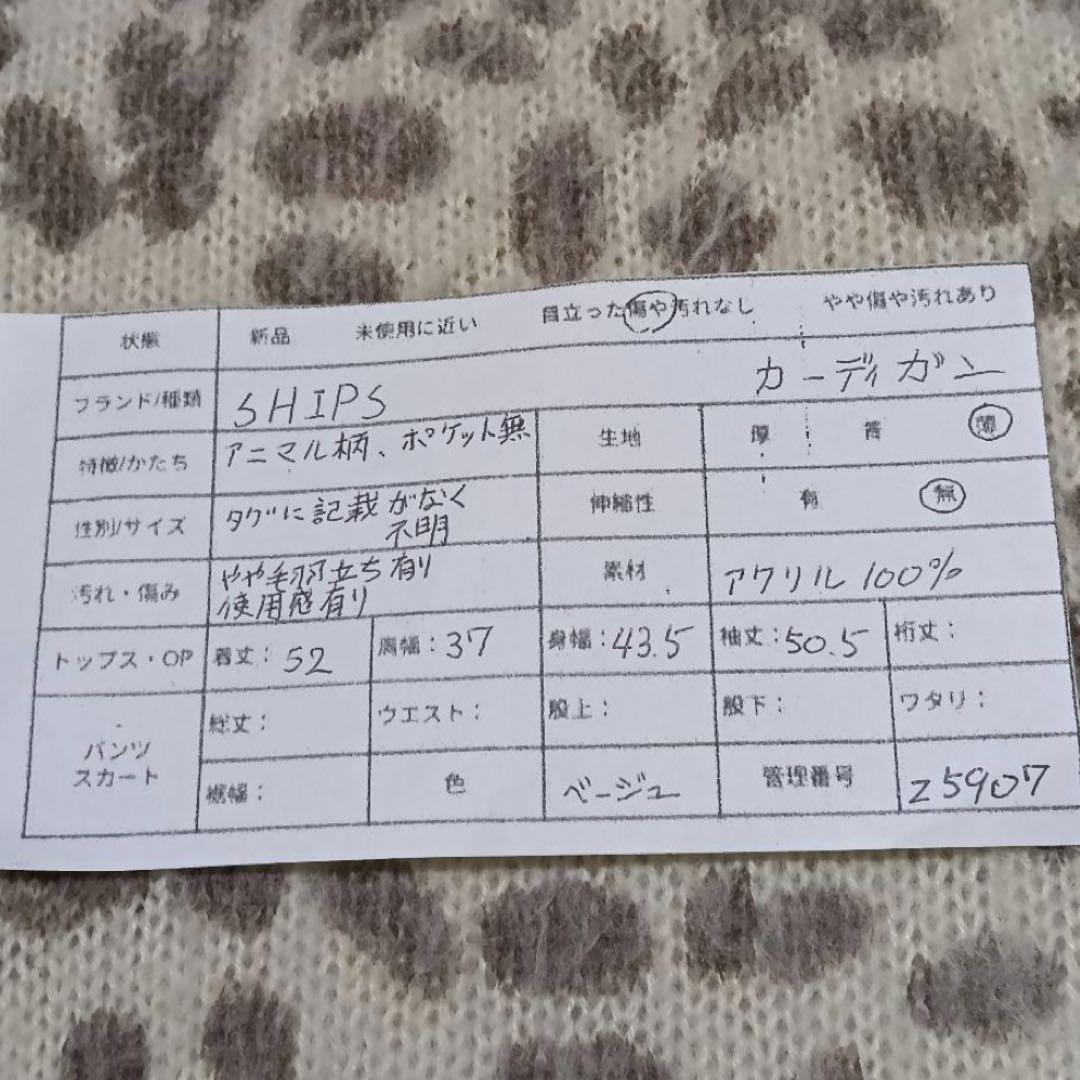 状態 新品 未使用に近い 目立った傷や汚れなし やや傷や汚れあり
ブランド/種類 SHIPS カーディガン
特徴/かたち アニマル柄、ポケット無 生地 厚 普 薄
性別/サイズ タグに記載がなく
不明 伸縮性 有 無
汚れ・傷み やや毛羽立ち有り
使用感有り 素材 アクリル100%
トップス・OP 着丈: 52 肩幅: 37 身幅: 43.5 袖丈: 50.5 裄丈:
パンツ
スカート
総丈: ウエスト: 股上: 股下: ワタリ:
裾幅: 色 ベージュ 管理番号 Z5907